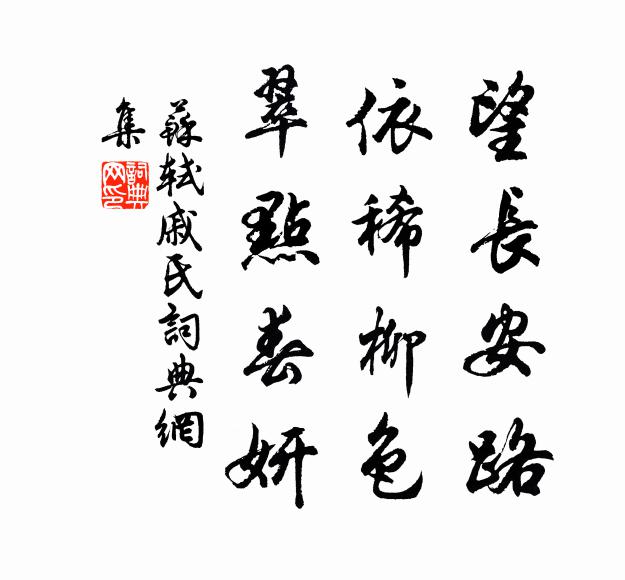 望長安路
依稀柳色
翠點春妍
蘇軾戚氏詞典網
集
詞典
网印